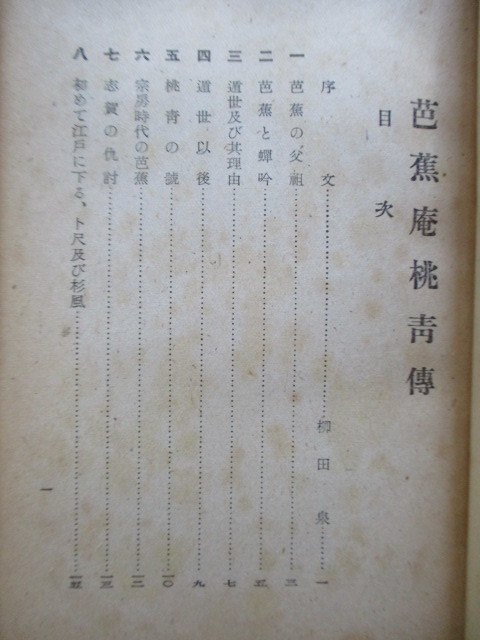 芭蕉庵桃靑傳
目次
序文 柳田泉 一
一 芭蕉の父祖 三
二 芭蕉と蟬吟 五
三 遁世及び其理由 七
四 遁世以後 九
五 桃靑の號 一〇
六 宗房時代の芭蕉 一二
七 志賀の仇討 一三
八 初めて江戶に下る、卜尺及び杉風 一五
一